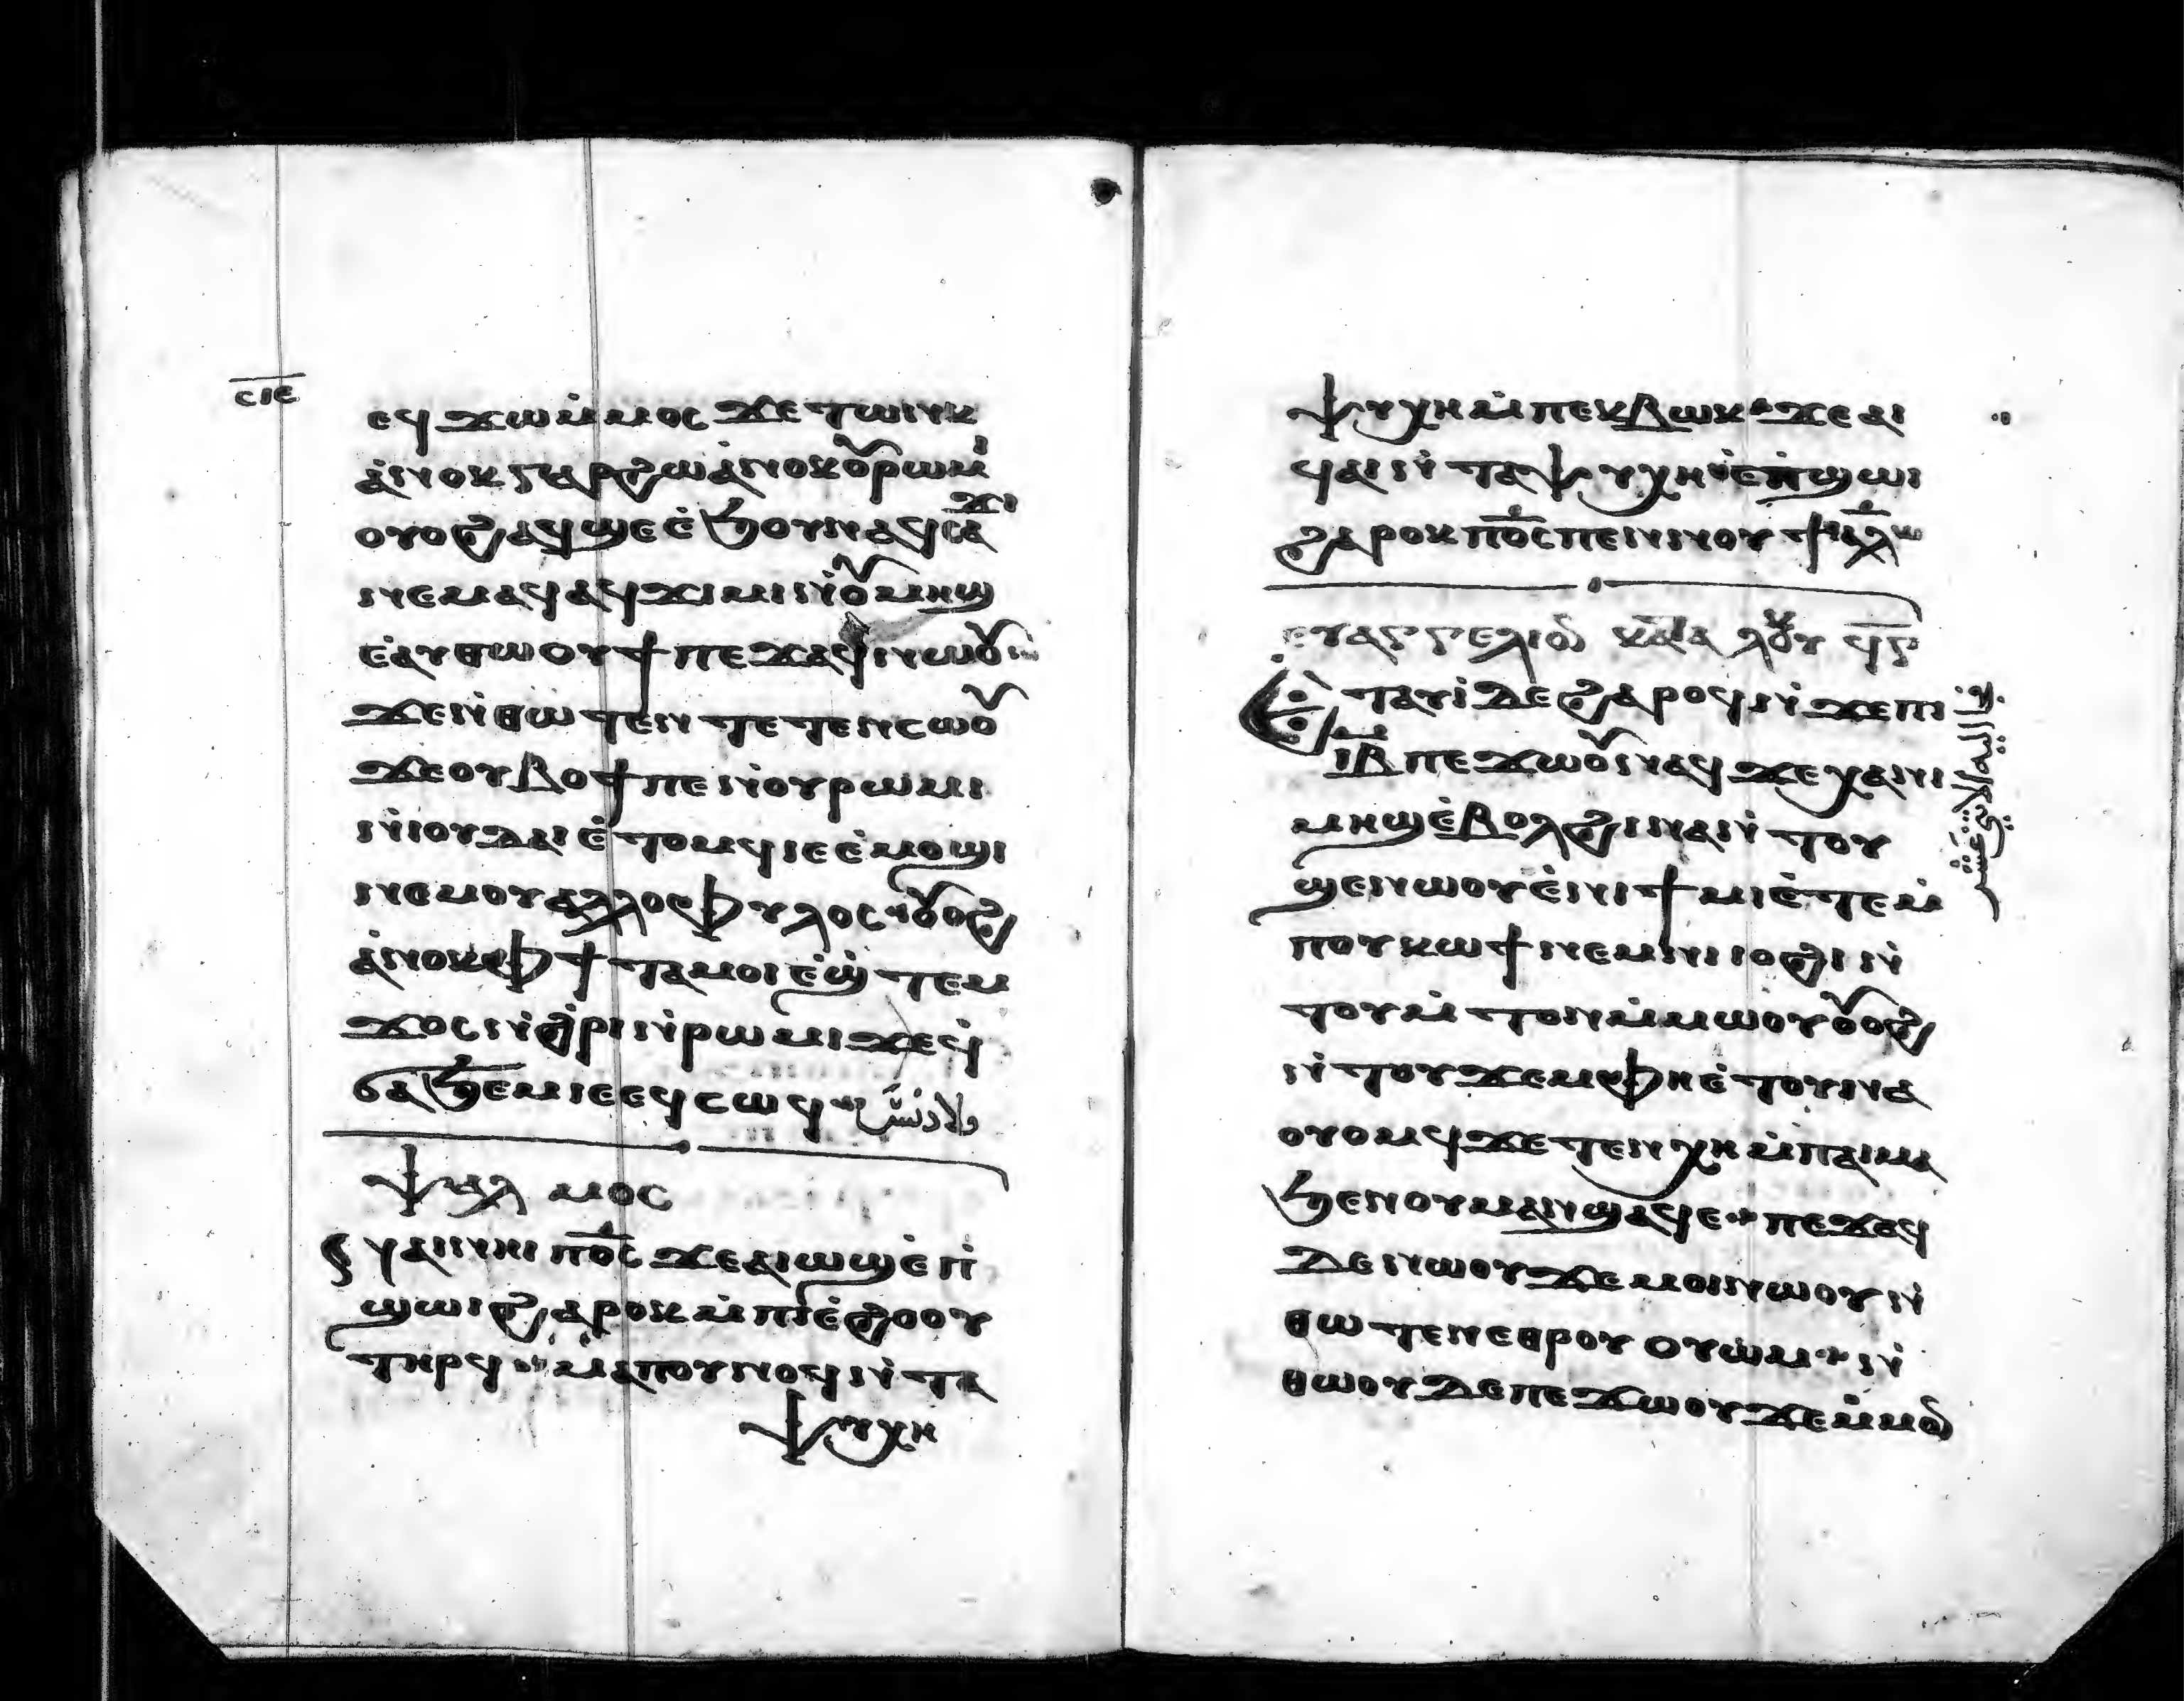 ⲥⲓⲉ
ⲉϥϫⲱⲙ̇ⲙⲟⲥ ϫⲉⲧⲱⲛⲕ
ⲁ̇ⲛⲟⲕ ⲅⲁⲣ ϩⲱ ⲁ̇ⲛⲟⲕ ⲟⲩⲣⲱⲙⲓ
ⲟⲩⲟϩ ⲁϥϣⲉ ⲉ̇ϧⲟⲩⲛ ⲁϥⲥⲁϫⲓ
ⲛⲉⲙⲁϥ ⲁϥϫⲓⲙⲓ ⲛ̇ⲟⲩⲙⲏϣ
ⲉ̇ⲁⲩⲑⲱⲟⲩϯ ⲡⲉϫⲁϥ ⲛⲱⲟⲩ
ϫⲉ ⲛ̇ⲑⲱⲧⲉⲛ ⲧⲉⲧⲉⲛⲥⲱⲟⲩ
ϫⲉ ⲟⲩⲃⲟϯ ⲡⲉ ⲛ̇ⲟⲩⲣⲱⲙⲓ
ⲛ̇ⲓⲟⲩⲇⲁⲓ ⲉ̇ⲧⲟⲙϥ ⲓⲉ ⲉ̇ⲙⲟϣⲓ
ⲛⲉⲙ ⲟⲩⲁⲗⲗⲟⲫⲩⲗⲟⲥ ⲟⲩⲟϩ
ⲁ̇ⲛⲟⲕ ⲫϯ ⲧⲁⲙⲟⲓ ⲉ̇ϣ̇ⲧⲉⲙ
ϫⲟⲥ ⲛ̇ϩ̇ⲣⲓ ⲛ̇ⲣⲱⲙⲓ ϫⲉ ϥ̇
ϭⲁϧⲉⲙ ⲓⲉ ⲉϥⲥⲱϥ
ⲯⲁⲗⲙⲟⲥ
ⲛⲁⲓ ⲛⲏⲓ ⲡⲟ̅ⲥ̅ ϫⲉ ⲁⲓⲱϣ ⲉ̇ⲡ̇
ϣⲱⲓ ϩⲁⲣⲟⲕ ⲙ̇ⲡⲓⲉ̇ϩⲟⲟⲩ
ⲧⲏⲣϥ ⲙⲁ ⲡⲟⲩⲛⲟϥ ⲛ̇ⲧⲁ
ⲯⲩⲭⲏ
ⲯⲩⲭⲏ ⲙ̇ⲡⲉⲕⲃⲱⲕ ϫⲉ ⲁⲓ
ϥⲁⲓ ⲛ̇ⲧⲁⲯⲩⲭⲏ ⲉ̇ⲡ̇ϣⲱⲓ
ϩⲁⲣⲟⲕ ⲡⲟ̅ⲥ̅ ⲡⲉⲛⲛⲟⲩϯ ⲁⲗ
ⲉⲩⲁⲅⲅⲉⲗⲓⲟⲛ ⲕⲁⲧⲁ ⲗⲟⲩ ϥⲅ
ⲉⲧⲁⲩⲓ̇ ⲇⲉ ϩⲁⲣⲟϥ ⲛ̇ϫⲉ ⲡⲓ
ⲓ̅ⲃ̅ ⲡⲉϫⲱⲟⲩ ⲛⲁϥ ϫⲉ ⲭⲁ ⲛⲓ
ⲙⲏϣ ⲉ̇ⲃⲟⲗ ϩⲓⲛⲁ ⲛ̇ⲧⲟⲩ
ϣⲉⲛⲱⲟⲩ ⲉ̇ⲛⲓϯⲙⲓ ⲉ̇ⲧⲉⲙ̇
ⲡⲟⲩⲕⲱϯ ⲛⲉⲙ ⲛⲓⲓⲟϩⲓ ⲛ̇
ⲧⲟⲩⲙ̇ⲧⲟⲛ ⲙ̇ⲙⲱⲟⲩ ⲟⲩⲟϩ
ⲛ̇ⲧⲟⲩϫⲉⲙ ⲫⲏ ⲉ̇ⲧⲟⲩⲛⲁ
ⲟⲩⲟⲙϥ ϫⲉ ⲧⲉⲛⲭⲏ ⲙ̇ⲡⲁⲓⲙⲁ
ϧⲉⲛ ⲟⲩⲙⲁ ⲛ̇ϣⲁϥⲉ ⲡⲉϫⲁϥ
ⲇⲉ ⲛⲱⲟⲩ ϫⲉ ⲙⲟⲓ ⲛⲱⲟⲩ ⲛ̇
ⲑⲱⲧⲉⲛ ⲉⲑⲣⲟⲩⲟⲩⲱⲙ ⲛ̇
ⲑⲱⲟⲩ ⲇⲉ ⲡⲉϫⲱⲟⲩ ϫⲉ ⲙ̇ⲙⲟⲛ